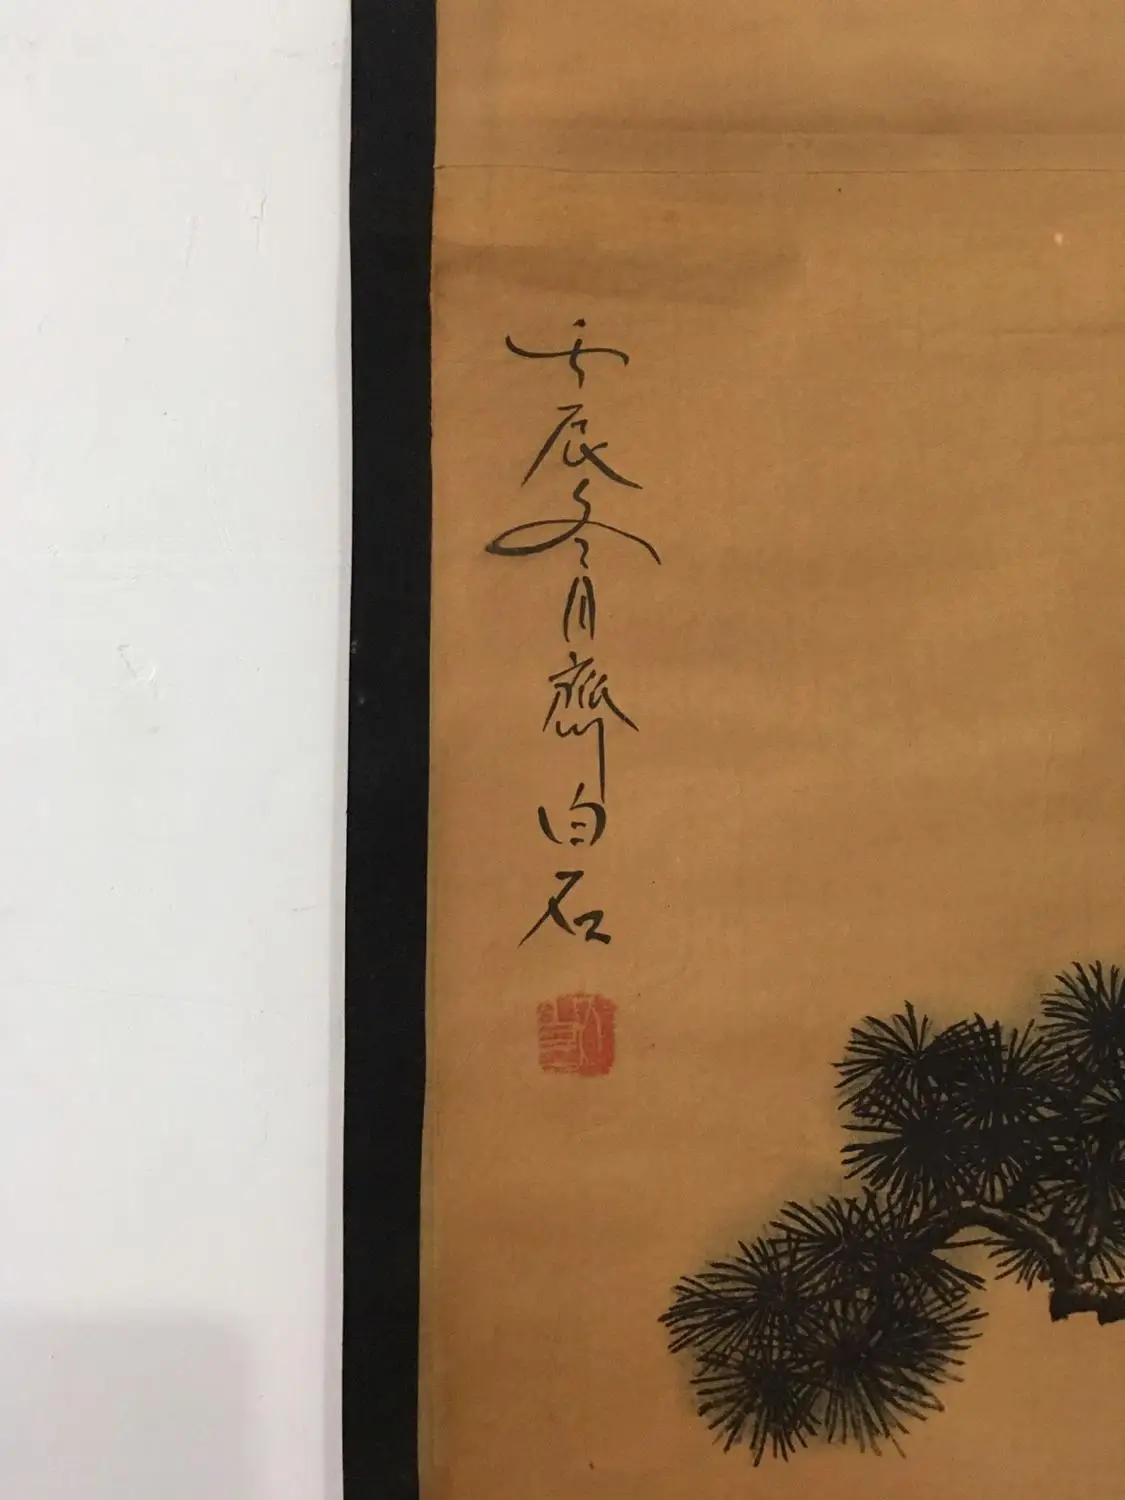 壬辰冬月齋白石